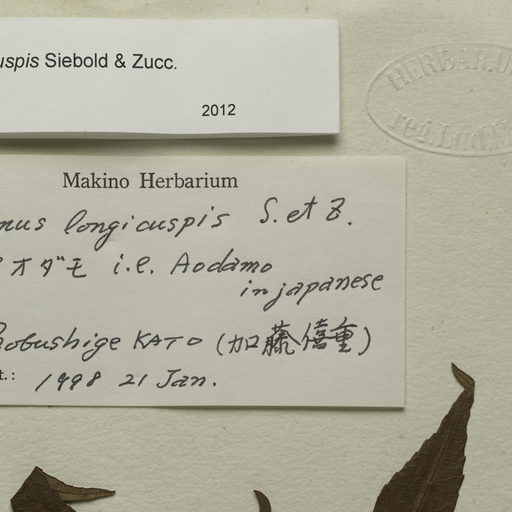 uspis Siebold & Zucc.
2012
HERBAR.
reg. Lud
Makino Herbarium
nus longicuspis S. et Z.
アオダモ i.e. Aodamo
in japanese
Nobushige KATO (加藤僖重)
t.: 1998 21 Jan.